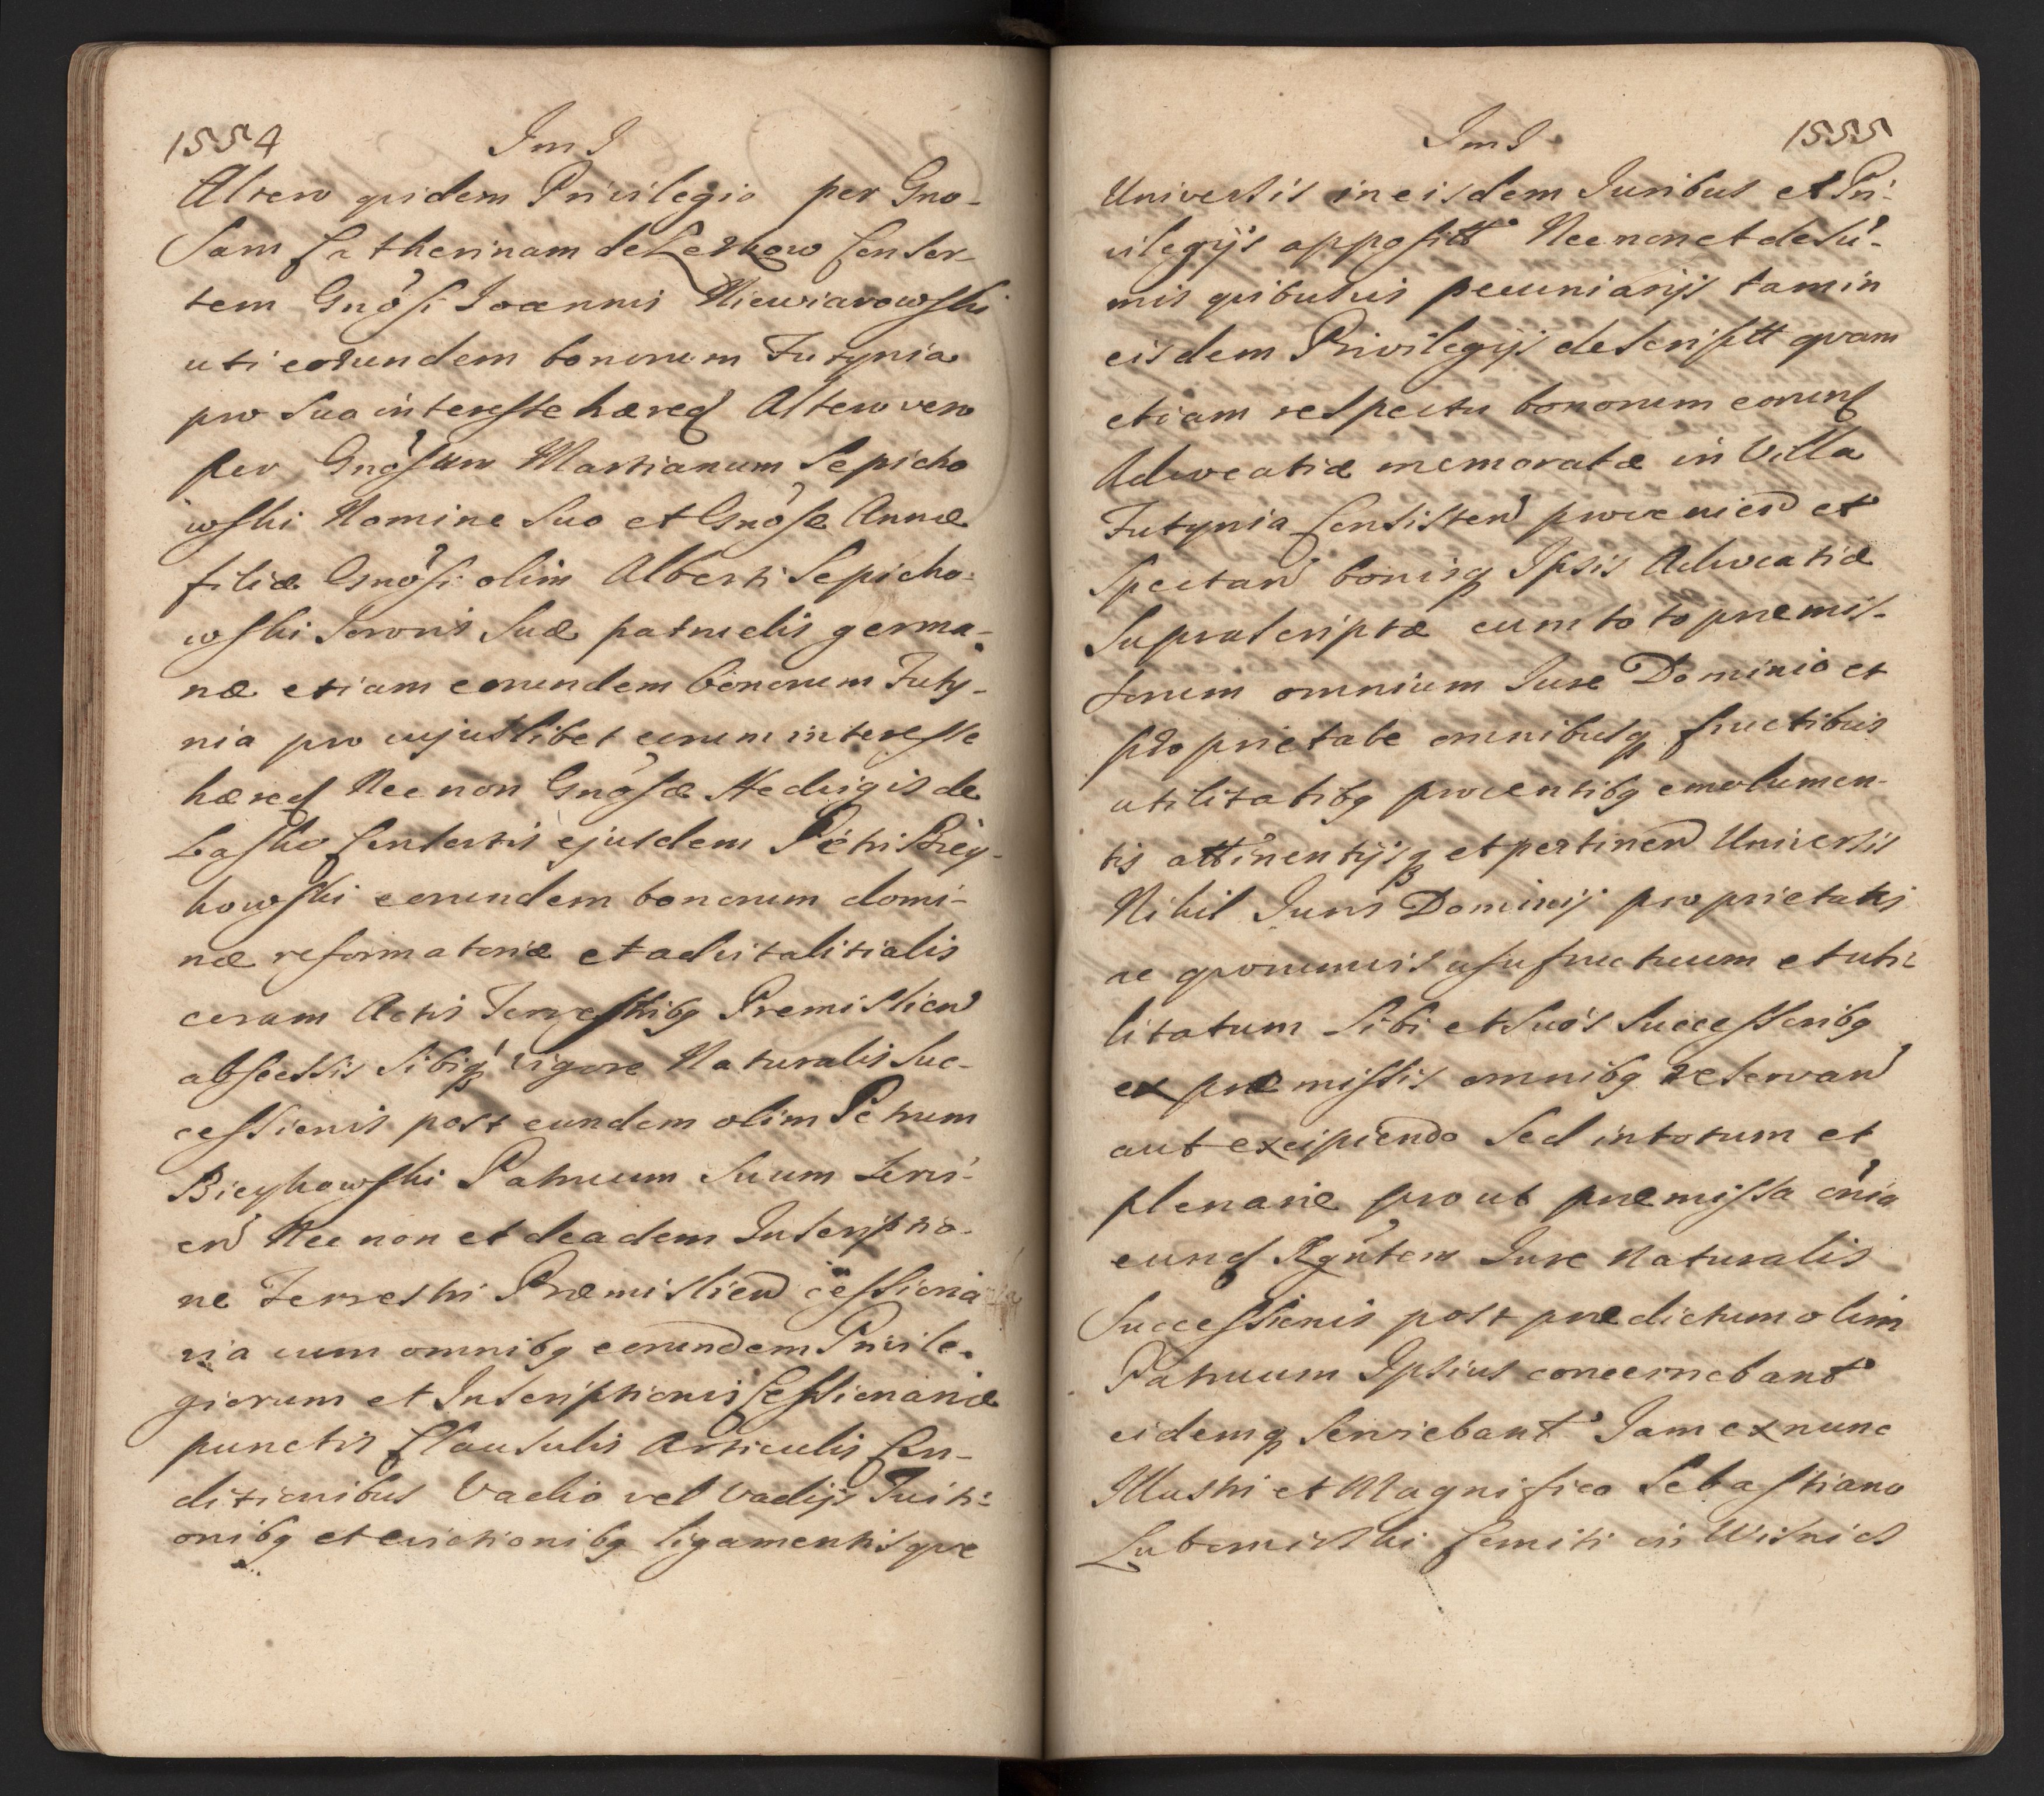 1554
Jm J
Altero quidem Privilegio per Gno-
sam Catherinam de Lethow Consor-
tem Gnosi Joannis Niewiarowski
uti eorundem bonorum Futynia
pro suo interesse hæred Altero vero
per Gnosum Martianum Sepicho
wski Nomine suo et Gnosæ Annæ
filiæ Gnosi olim Alberti Sepicho-
wski Sororis suæ patruelis germa-
næ etiam eorundem bonorum Futy-
nia pro cujuslibet eorum interesse
hæred Nec non Gnosæ Hedvigis de
Lasko Consortis ejusdem Petri Biey-
kowski eorundem bonorum domi-
næ reformatoriæ et advitalitialis
coram Actis Terrestribq Premislien
abscessis sibiq vigore Naturalis Suc-
cessionis post eundem olim Petrum
Bieykowski Patruum suum servi-
en Nec non et de eadem Inscriptio-
ne Terrestri Præmislien cessiona
ria cum omnibq eorundem Privile-
giorum et Inscriptionis Cessionariæ
punctis Clausulis Articulis Con-
ditionibus Vadio vel Vadijs Tuiti-
onibq et evictionibq ligamentisque
Jm J
1555
Universis in eisdem Juribus et Pri-
vilegijs apposit Nec non et de su-
mis quibusvis pecuniarijs tam in
eisdem Privilegijs descriptt quam
etiam respectu bonorum eorund
Advocatiæ memoratæ in Villa
Futynia Consisten provenien et
spectan bonisq Ipsis Advocatiæ
suprascriptæ cum toto præmis-
sorum omnium Jure Dominio et
proprietate omnibusq fructibus
utilitatibq proventibq emolumen-
tis attinentijsq et pertinen Universis
Nihil Juris Dominij proprietatis
ac quorumvis usufructuum et uti-
litatum sibi et suis Successoribq
ex præmissis omnibq reservan
aut excipiendo Sed in totum et
plenarie prout præmissa oñia
eund Rgñtem Jure Naturalis
Successionis post prædictum olim
Patruum Ipsius concernebant
eidemq serviebant Jam ex nunc
Illustri et Magnifico Sebastiano
Lubomirski Comiti in Wisnicz